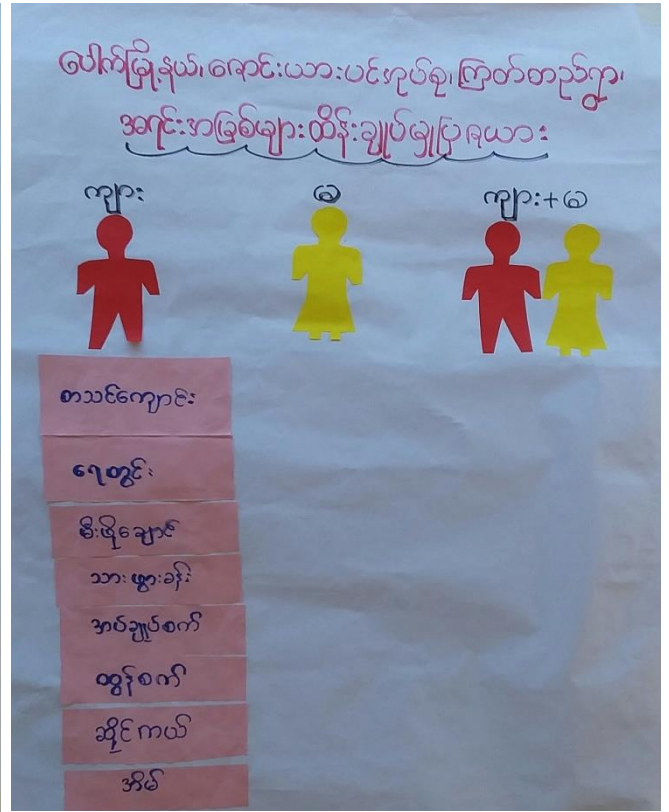 ပေါက်မြို့နယ်၊ ခေါင်းယားပင်အုပ်စု၊ ကြတ်တည်ရွာ၊
အရင်းအမြစ်များထိန်းချုပ်မှုပြဇယား
ကျား မ ကျား+မ
စာသင်ကျောင်း
ရေတွင်း
မီးဖိုချောင်
သားဖွားခန်း
အပ်ချုပ်စက်
ထွန်စက်
ဆိုင်ကယ်
အိမ်